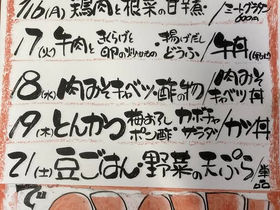 16(月) 鶏肉と根菜の甘煮・/ミートグラタン
17(火) 牛肉ときくらげと卵の炒めもの・揚げだしどうふ/牛丼
18(水) 肉みそキャベツ・酢の物/肉みそキャベツ丼
19(木) とんかつ 梅おろしポン酢 カボチャサラダ/カツ丼
21(土) 豆ごはん 野菜の天ぷら/単品
で